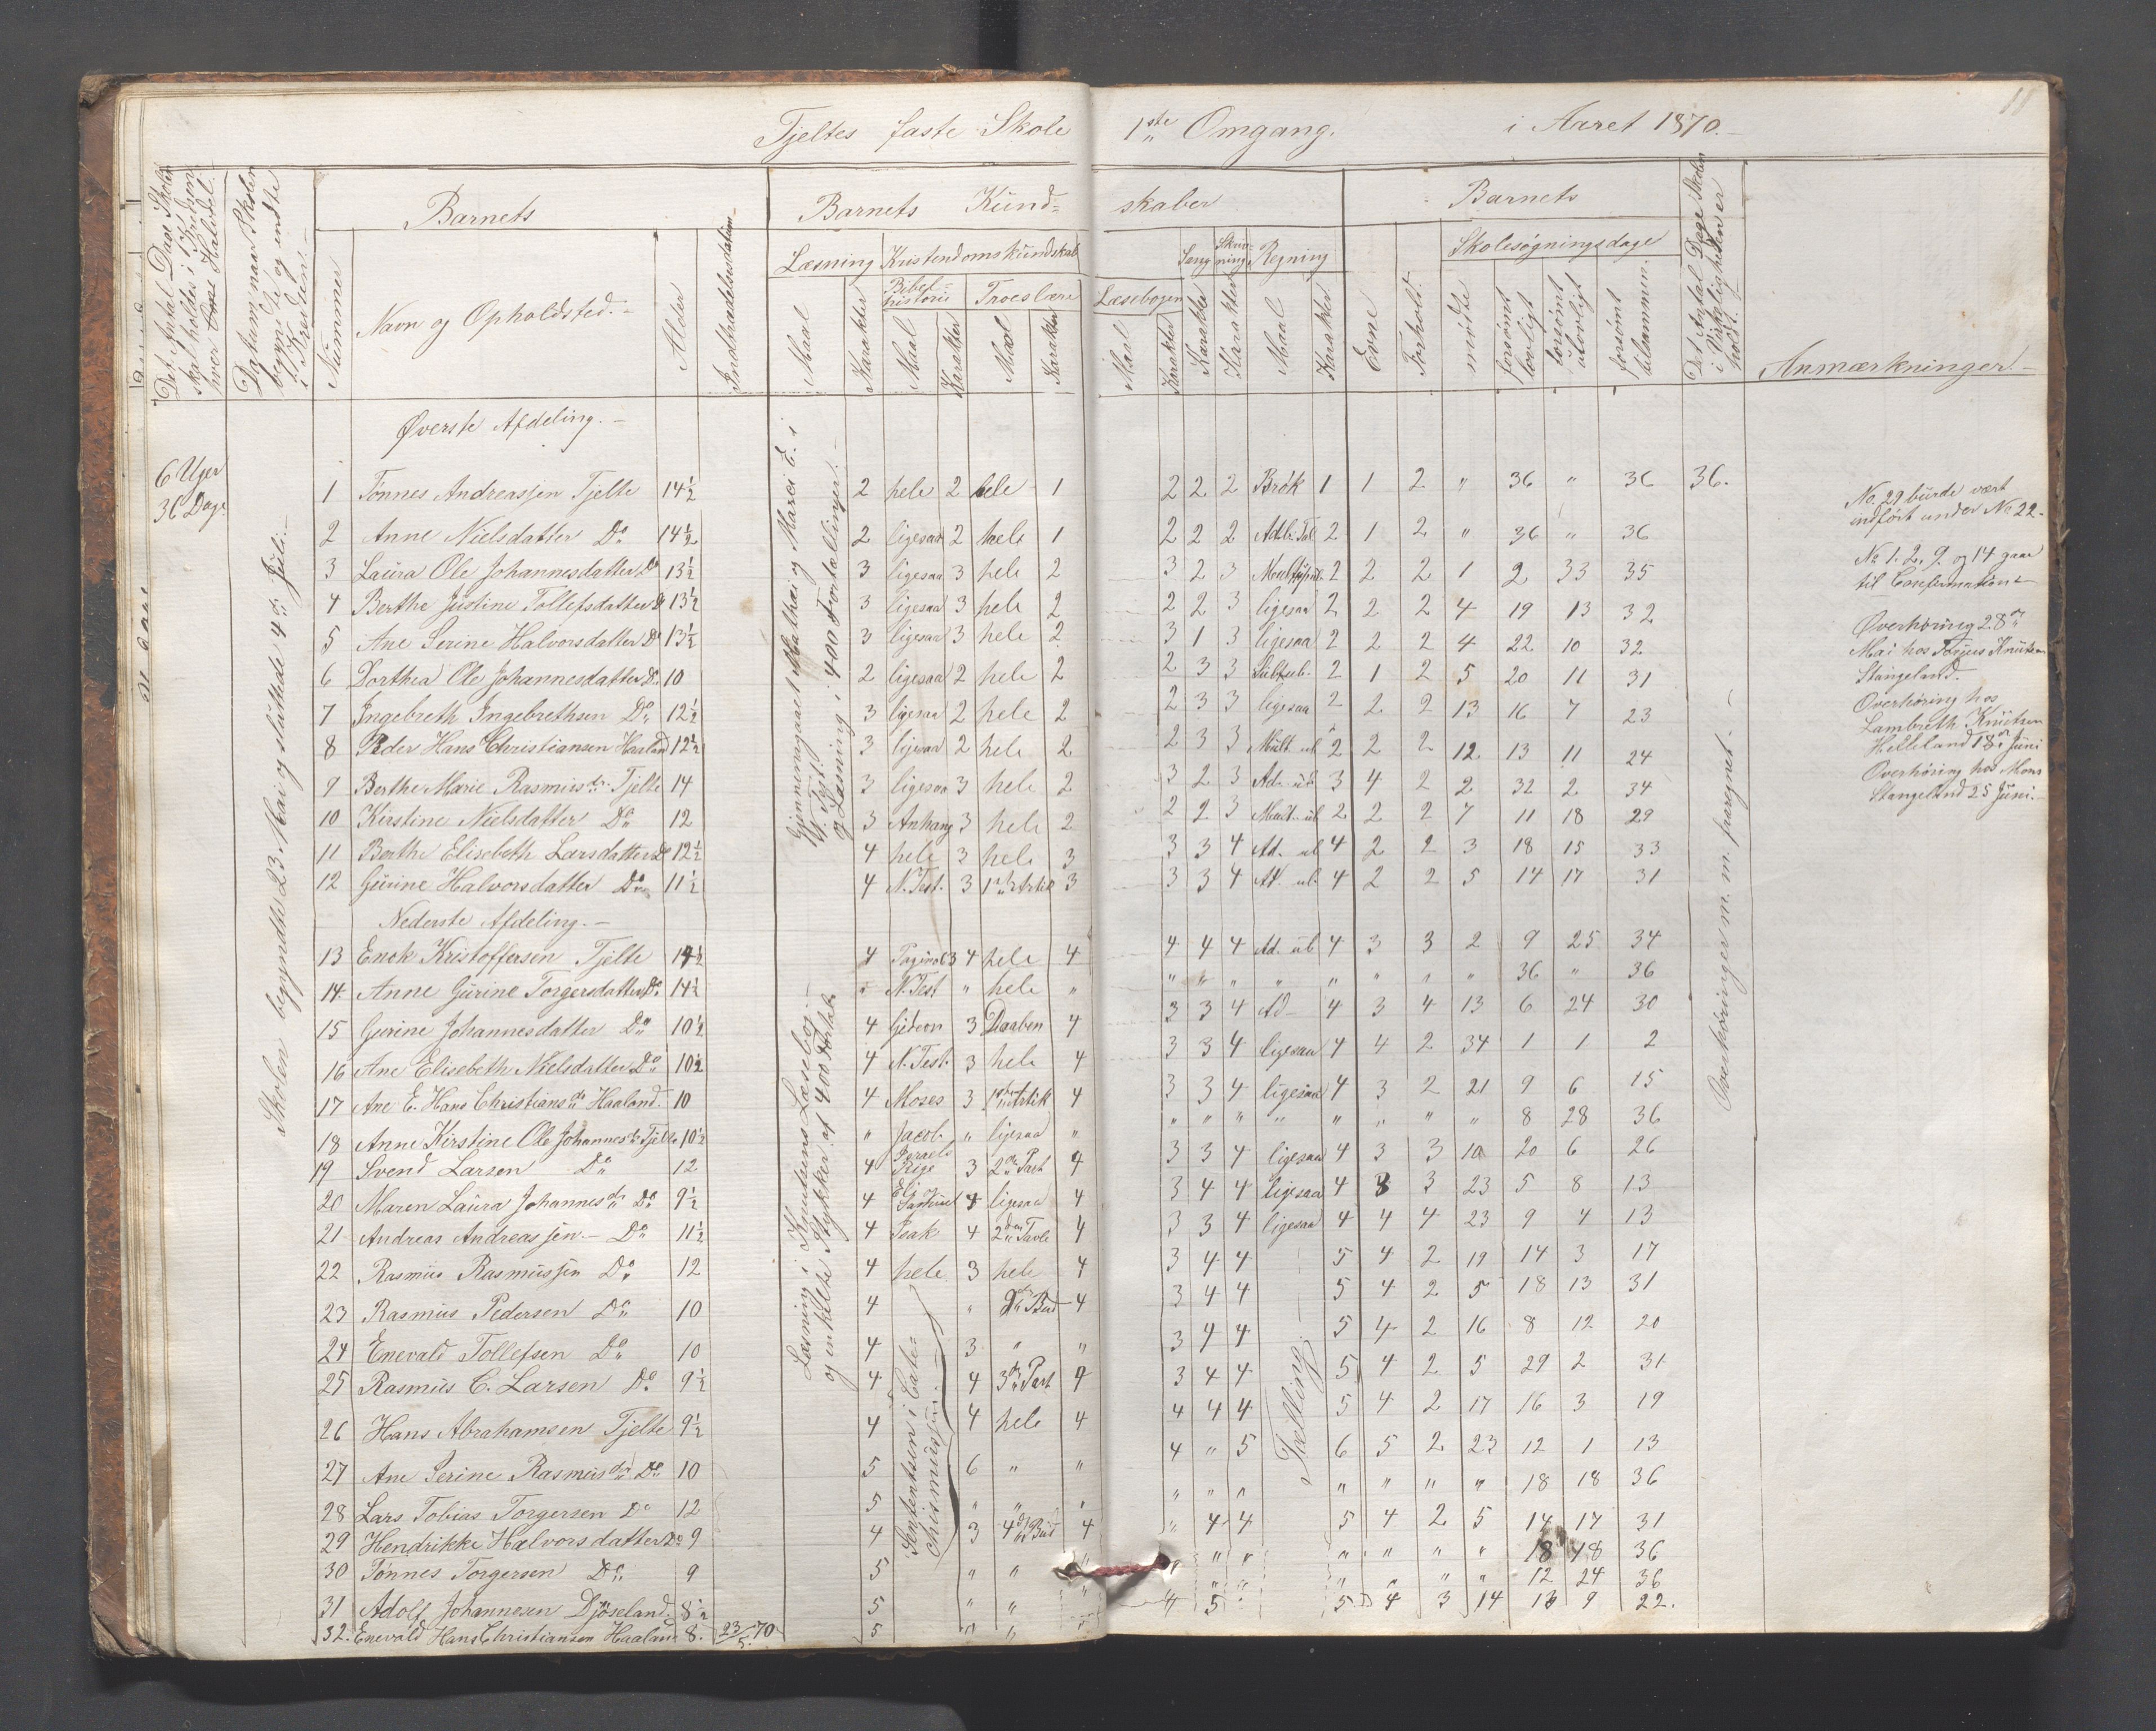 11
Tjeltes faste Skole 1ste Omgang. i Aaret 1870.
Det Antal Dage Skolen skal holdes i Kredsen hver Halvdel.
Datum naar Skolen begyndte og endte i Kredsen.
Barnets
Nummer
Navn og Opholdsted.
Alder
Indtrædelsesdatum
Barnets Kund=skaber
Læsning
Kristendomskundskab
Bibel=historie
Troeslære
Læsebogen
Sang
Skriv=ning
Regning
Maal Karakter Maal Karakter Maal Karakter Maal Karakter Karakter Karakter Maal Karakter
Barnets
Evne
Forhold.
Skolesøgningsdage
mødte
forsømt lovligt
forsømt ulovligt
forsømt tilsammen.
Det Antal Dage Skolen i Virkeligheden er holdt.
Anmærkninger
Øverste Afdeling.
6 Uger
36 Dage
Skolen begyndte 23 Mai og sluttede 4de Juli.
Gjennemgaaet Mathæi og Marci E. i N. Test. og Læsning i 400 Fortællinger.
1 Tønnes Andreassen Tjelte 14½ 2 hele 2 hele 1 2 2 2 Brøk 1 1 2 " 36 " 36 36.
2 Anne Nielsdatter Do 14½ 2 ligesaa 2 hele 1 2 2 2 2 1 2 " 36 " 36
3 Laura Ole Johannesdatter Do 13½ 3 ligesaa 3 hele 2 3 2 3 2 2 2 1 2 33 35
4 Berthe Justine Tollefsdatter Do 13½ 3 ligesaa 3 hele 2 2 2 3 ligesaa 2 2 2 4 19 13 32
5 Ane Serine Halvorsdatter Do 13½ 3 ligesaa 3 hele 2 3 1 3 ligesaa 2 2 2 4 22 10 32
6 Dorthea Ole Johannesdatter Do 10 2 ligesaa 2 hele 2 2 3 3 2 1 2 5 20 11 31
7 Ingebreth Ingebrethsen Do 12½ 3 ligesaa 2 hele 2 2 3 3 ligesaa 2 2 2 13 16 7 23
8 Peder Hans Christiansen Haaland 12½ 3 ligesaa 2 hele 2 2 3 3 Mult. ub 2 2 2 12 13 11 24
9 Berthe Marie Rasmusdr Tjelte 14 3 ligesaa 3 hele 2 3 2 3 Ad. ub 3 4 2 2 32 2 34
10 Kirstine Nielsdatter Do 12 3 Anhang 3 hele 2 2 2 3 Mult. ub 2 2 2 7 11 18 29
11 Berthe Elisebeth Larsdatter Do 12½ 4 hele 3 hele 3 3 3 4 Ad. ub 4 2 2 3 18 15 33
12 Gurine Halvorsdatter Do 11½ 4 N. Test. 3 1ste Artik 3 3 3 4 Ad. ub. 4 2 2 5 14 17 31
Nederste Afdeling.
Læsning i Knutsens Læsebog og enkelte Stykker af 400 Fortæl
13 Enok Kristoffersen Tjelte 14½ 4 4 hele 4 4 4 4 Ad. ub 4 3 3 2 9 25 34
14. Anne Gurine Torgersdatter Do. 14½ " N. Test " hele " " " " " " " " " 36 " 36
15 Gurine Johannesdatter Do 10½ 4 Gideon 3 Daaben 4 3 3 4 Ad 4 3 4 13 6 24 30
16 Ane Elisebeth Nielsdatter Do 10½ 4 N. Test. 3 hele 4 3 3 4 ligesaa 4 4 2 34 1 1 2
17 Ane E. Hans Christiansdr Haaland. 10 4 Moses 3 1ste Artik 4 3 3 4 ligesaa 4 3 2 21 9 6 15
18 Anne Kirstine Ole Johannesdr Tjelte 10½ " Jacob " ligesaa " " " " " " " " " 8 28 36
19 Svend Larsen Do 12 4 Israels Rige 3 2den Part 4 3 3 4 ligesaa 4 3 3 10 20 6 26
20 Maren Laura Johannesdr Do 9½ 4 Eli og Samuel 4 ligesaa 4 3 4 4 ligesaa 4 3 3 23 5 8 13
21 Andreas Andreassen Do 11½ 4 Isak 4 2den Tavle 4 3 3 4 ligesaa 4 4 4 23 9 4 13
22 Rasmus Rasmussen Do 12 4 hele 3 hele 4 3 4 4 5 4 2 19 14 3 17
23 Rasmus Pedersen Do 10 4 " Bud 4 3 4 4 5 4 2 5 18 13 31
24 Enevald Tollefsen Do 10 4 3 " " 3 4 4 5 4 2 16 8 12 20
25 Rasmus C. Larsen Do 9½ 4 4 3die Part 4 3 4 4 5 4 2 5 29 2 31
26 Hans Abrahamsen Tjelte 9½ 4 4 hele 4 4 4 4 5 4 2 17 16 3 19
27 Ane Serine Rasmusdr Do 10 5 6 " " 4 " 5 6 5 2 23 12 1 13
28 Lars Tobias Torgersen Do 12 5 " " " " " " " " " " 18 18 36
29 Hendrikke Halvorsdatter Do 9 4 3 4de Bud 4 " 4 4 5 4 2 5 14 17 31
30 Tønnes Torgersen Do 9 5 " " " " " " " " " " 18 18 36
31 Adolf Johannesen Djøseland. 8½ 5 " " " " " " " " " 12 24 36
32. Enevald Hans Christiansen Haaland 8. 23/5 70 5 " " " 4 5 " 5 4 3 14 13 9 22.
Tælling.
Overhøringer m. m. fraregnet.
No. 29 burde vært
indført under No 22.
No 1. 2. 9. og 14 gaar
til Confirmation
Overhøring 28de
Mai hos Torjus Knutsen
Stangeland.
Overhøring hos
Lambreth Knutsen
Helleland 18de Juni
Overhøring hos Mons
Stangeland 25 Juni.